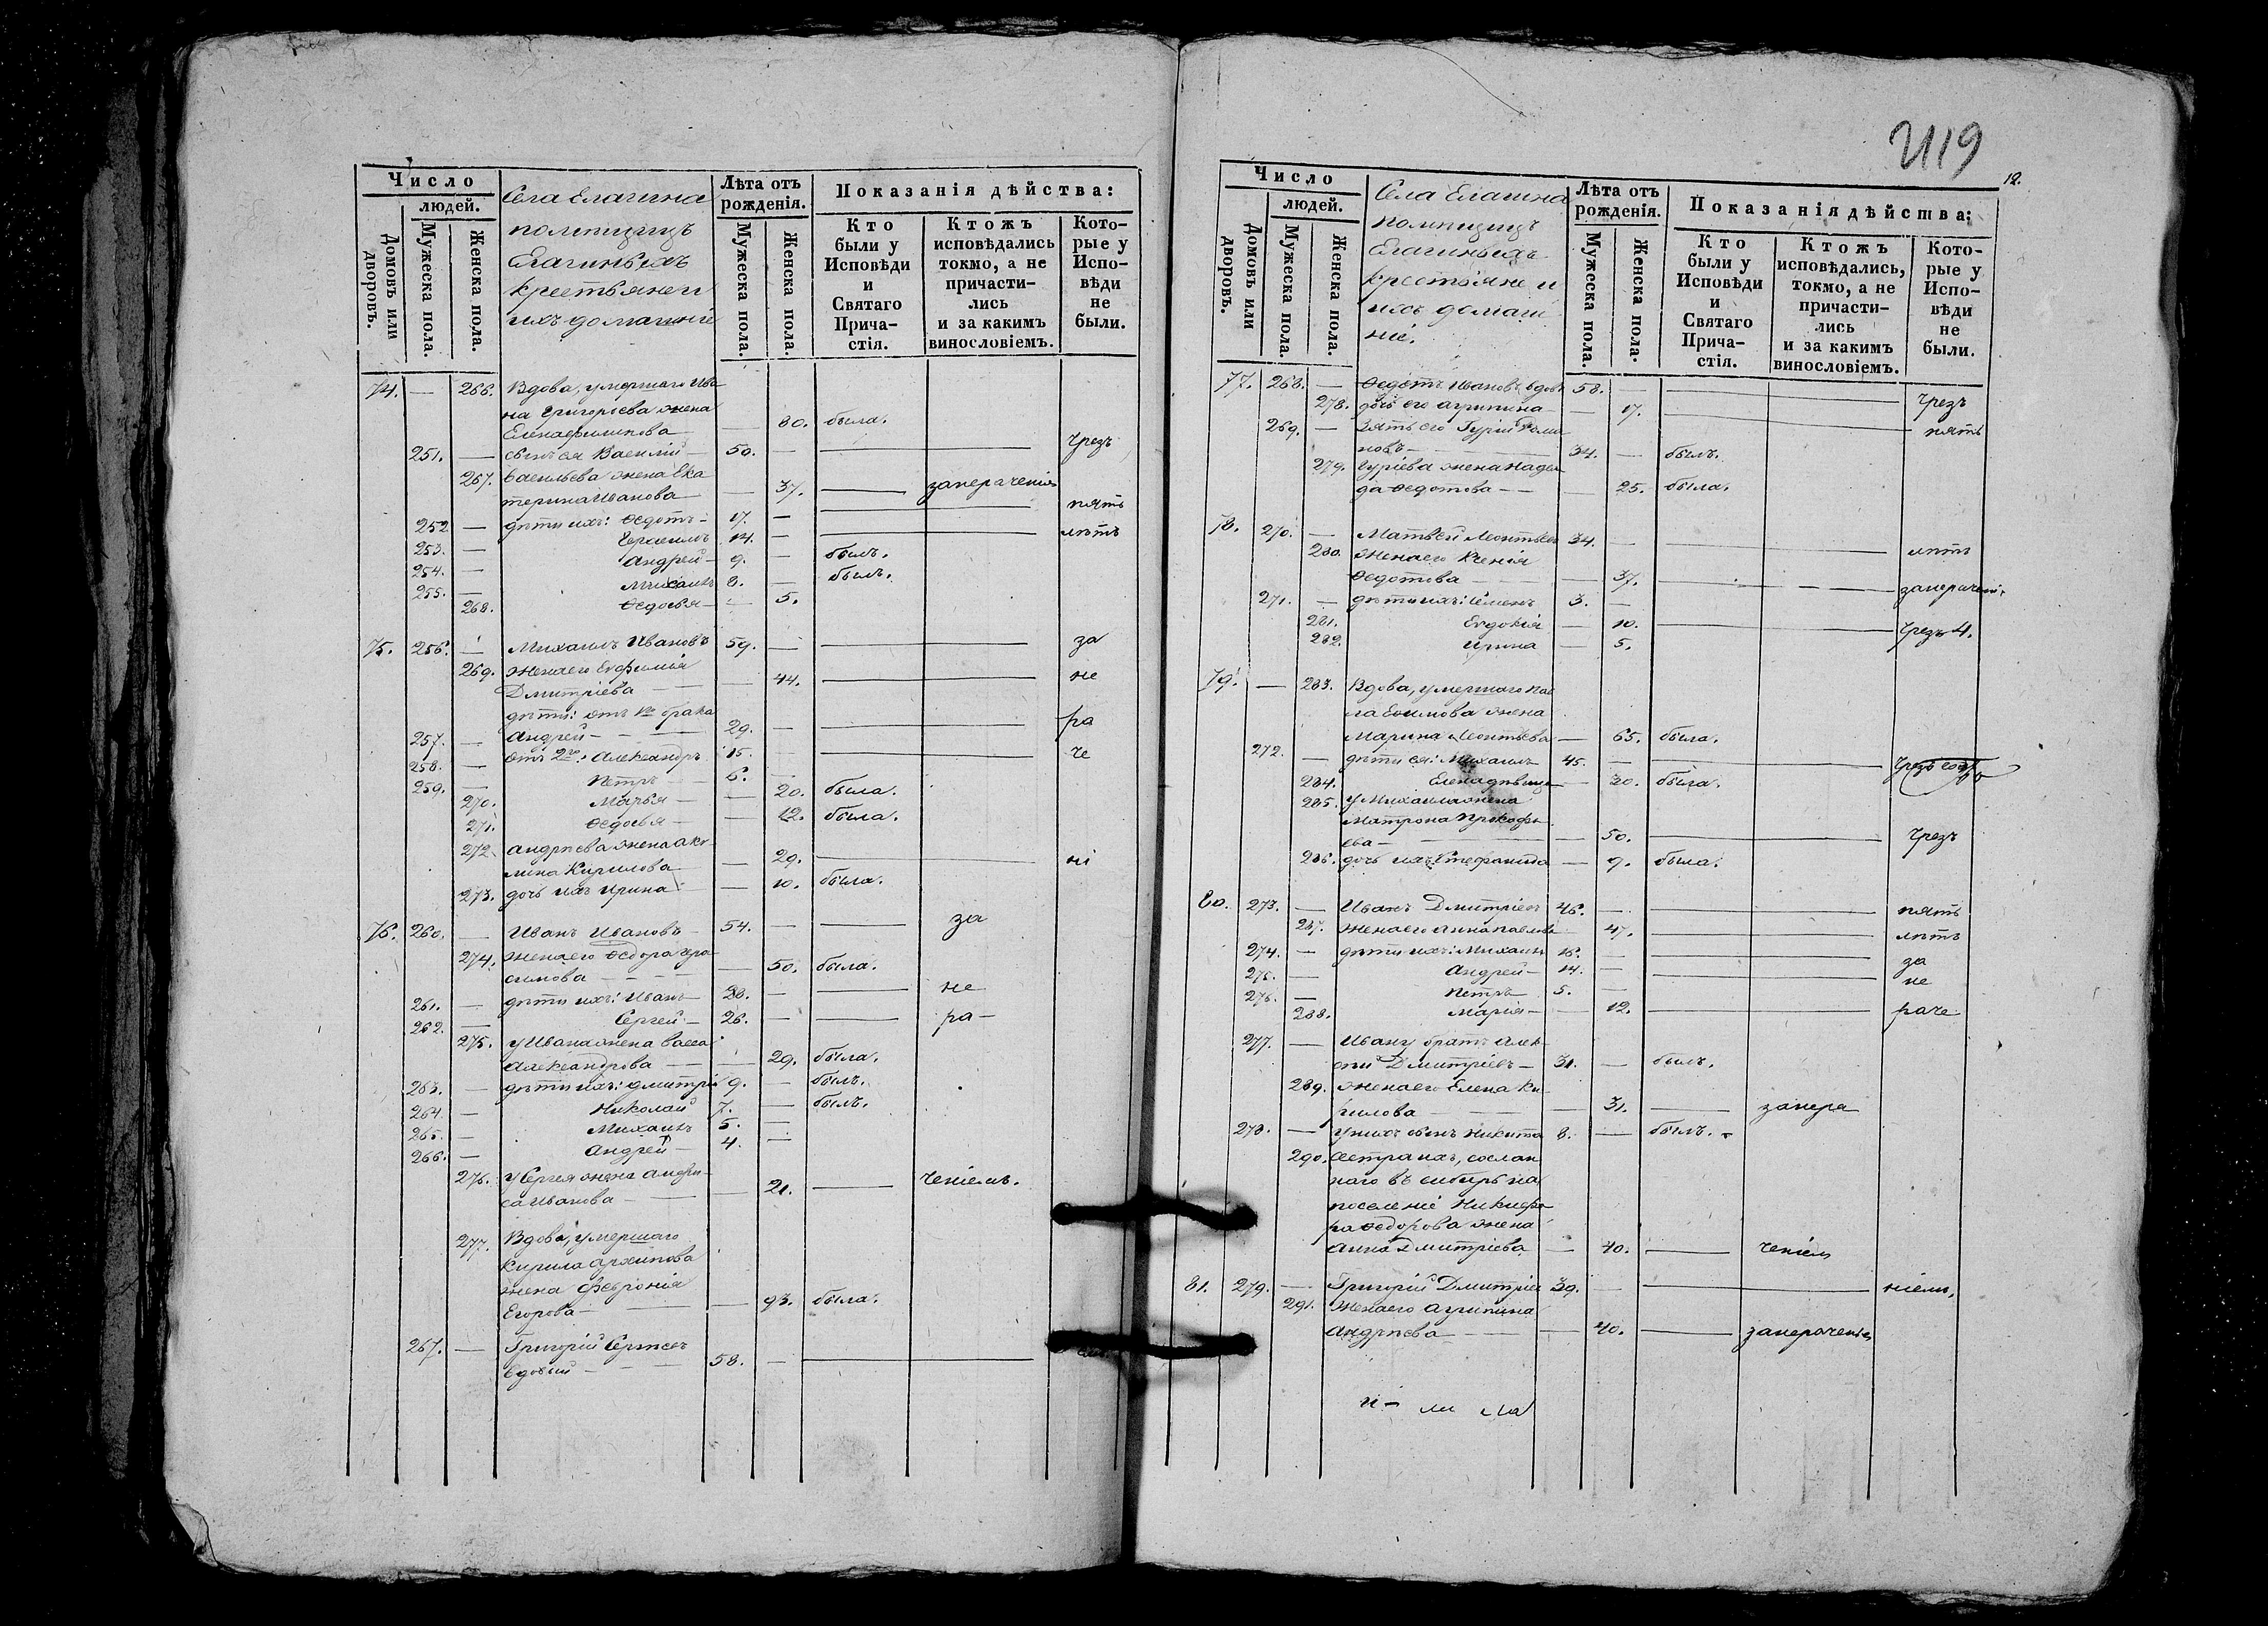 Число
людей.
Домовъ или дворовъ.
Мужеска пола.
Женска пола.
Села Елагина
помпщицъ
Елагиныхъ
крестьяне и
ихъ домашніе
Лѣта отъ рожденія.
Мужеска пола.
Женска пола.
Показанія дѣйства:
Кто были у Исповѣди и Святаго Причастія.
Ктожъ исповѣдались токмо, а не причастились и за какимъ винословіемъ.
Которые у Исповѣди не были.
74. — 266. Вдова, умершаго Ива
на Григорьева жена
Елена Филипова — 80. была.
251. — сынъ ея Василій — 50. — чрезъ
267. Васильева жена Ека
терина Иванова — 37. — занераченіемъ
252 — дѣти ихъ: Ѳедотъ — 17. — пять
253. — Герасимъ 14. — лѣтъ
254. — Андрей — 9. — былъ.
255. — Михаилъ 8. — былъ.
268. Ѳедосья — 5.
75. 256. — Михаилъ Ивановъ 59. — за
269. Жена его Евфимія
Дмитріева — 44. — не
дѣти: отъ 1го брака
257. — Андрей — 29. — ра
258. — отъ 2го: Александръ 15. — че
259. — Петръ — 6. —
270. Марья — 20. была.
271. Ѳедосья — 12. была.
272. Андреева жена Аку
лина Кирилова — 29. — ні
273. дочь ихъ Ирина — 10. была.
76. 260. — Иванъ Ивановъ — 54. — за
274. Жена его Ѳедора Гера
симова — 50. была.
261. — дѣти ихъ: Иванъ 28. — не
262. — Сергей — 26. — ра —
275. у Ивана жена Васса
Александрова — 29. была.
263. — дѣти ихъ: Дмитрій 9. — былъ.
264. — Николай 7. — былъ.
265. — Михаилъ 5. —
266. — Андрей — 4. —
276. у Сергея жена Анфи
са Иванова — 21. — ченіемъ.
277. Вдова, умершаго
Кирила Архипова
жена Февронія
Егорова — 93. была.
267. — Григорій Сергеевъ
вдовый — 58. —
2119
12.
Число
людей.
Домовъ или дворовъ.
Мужеска пола.
Женска пола.
Села Елагина
помпщицъ
Елагиныхъ
крестьяне и
ихъ домаш
ніе.
Лѣта отъ рожденія.
Мужеска пола.
Женска пола.
Показанія дѣйства:
Кто были у Исповѣди и Святаго Причастія.
Ктожъ исповѣдались, токмо, а не причастились и за какимъ винословіемъ.
Которые у Исповѣди не были.
77. 268. — Ѳедотъ Ивановъ, вдовъ 58. — чрезъ
278. дочь его Агрипина — 17. — пять
269. — Зять его Гурій Рома
новъ — 34. — былъ.
279. Гуріева жена Надеж
да Ѳедотова — 25. была.
78. 270. — Матвей Леонтьевъ 34. — лѣтъ
280. Жена его Ксенія
Ѳедотова — 37. — занераченіе.
271. — дѣти ихъ: Семенъ 3. —
281. Евдокія — 10. — чрезъ 4.
282. Ирина — 5.
79. — 283. Вдова, умершаго Пав
ла Ефимова жена
Марина Леонтьева — 65. была.
272. — дѣти ея: Михаилъ 45. —
284. Елена дѣвица — 30. была.
285. у Михаила жена
Матрона Прокофь
ева — 50. — чрезъ
286. дочь ихъ Стефанида — 9. была.
80. 273. — Иванъ Дмитріевъ 46. — пять
287. Жена его Анна Павлова 47. — лѣтъ
274. — дѣти ихъ: Михаилъ 16. — за
275. — Андрей — 14. — не
276. — Петръ 5. —
288. Марія — 12. — раче
277. — Ивану братъ Алек
сѣй Дмитріевъ — 31. — былъ.
289. Жена его Елена Ки
рилова — 31. — занера
278. — у нихъ сынъ Никита 8. — былъ.
290. Сестра ихъ, сослан
наго въ сибирь на
поселеніе Никифо
ра Ѳедорова жена
Анна Дмитріева — 40. — ченіемъ
81. 279. — Григорій Дмитріев 39. — ніемъ,
291. Жена его Агрипина
Андреева — 40. — занераченіемъ